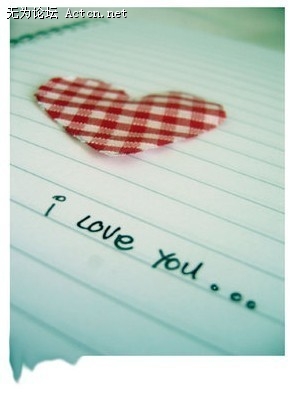 无为论坛 Actcn.net
i love you...